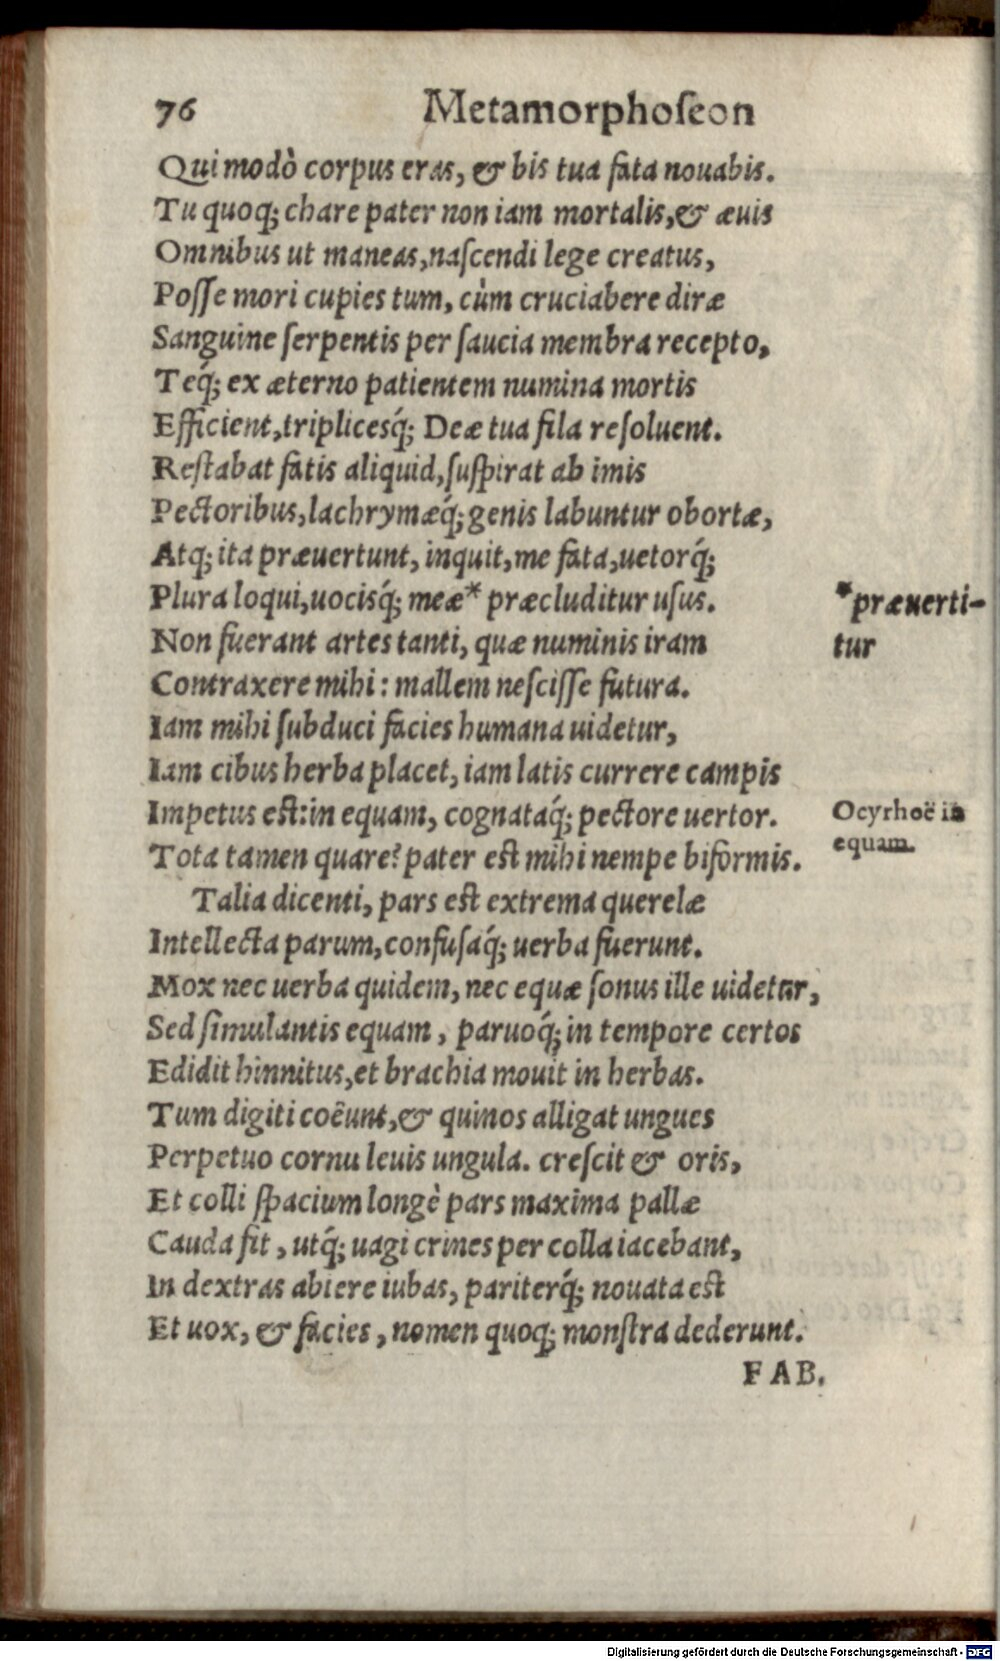 76 Metamorphoſeon
Qui modò corpus eras, & bis tua fata nouabis.
Tu quoq; chare pater non iam mortalis, & æuis
Omnibus ut maneas, naſcendi lege creatus,
Poſſe mori cupies tum, cùm cruciabere diræ
Sanguine ſerpentis per ſaucia membra recepto,
Teq́; ex æterno patientem numina mortis
Efficient, triplicesq́; Deæ tua fila reſoluent.
Reſtabat fatis aliquid, ſuſpirat ab imis
Pectoribus, lachrymæq́; genis labuntur obortæ,
Atq; ita præuertunt, inquit, me fata, uetorq́;
Plura loqui, uocisq́; meæ* præcluditur uſus.
*præuerti-
tur
Non fuerant artes tanti, quæ numinis iram
Contraxere mihi: mallem neſciſſe futura.
Iam mihi ſubduci facies humana uidetur,
Iam cibus herba placet, iam latis currere campis
Impetus eſt: in equam, cognataq́; pectore uertor.
Ocyrhoë in
equam.
Tota tamen quare? pater eſt mihi nempe biformis.
Talia dicenti, pars eſt extrema querelæ
Intellecta parum, confuſaq́; uerba fuerunt.
Mox nec uerba quidem, nec equæ ſonus ille uidetur,
Sed ſimulantis equam, paruoq́; in tempore certos
Edidit hinnitus, et brachia mouit in herbas.
Tum digiti coëunt, & quinos alligat ungues
Perpetuo cornu leuis ungula. creſcit & oris,
Et colli ſpacium longè pars maxima pallæ
Cauda fit, utq́; uagi crines per colla iacebant,
In dextras abiere iubas, pariterq́; nouata eſt
Et uox, & facies, nomen quoq; monſtra dederunt.
FAB.
Digitalisierung gefördert durch die Deutsche Forschungsgemeinschaft - DFG